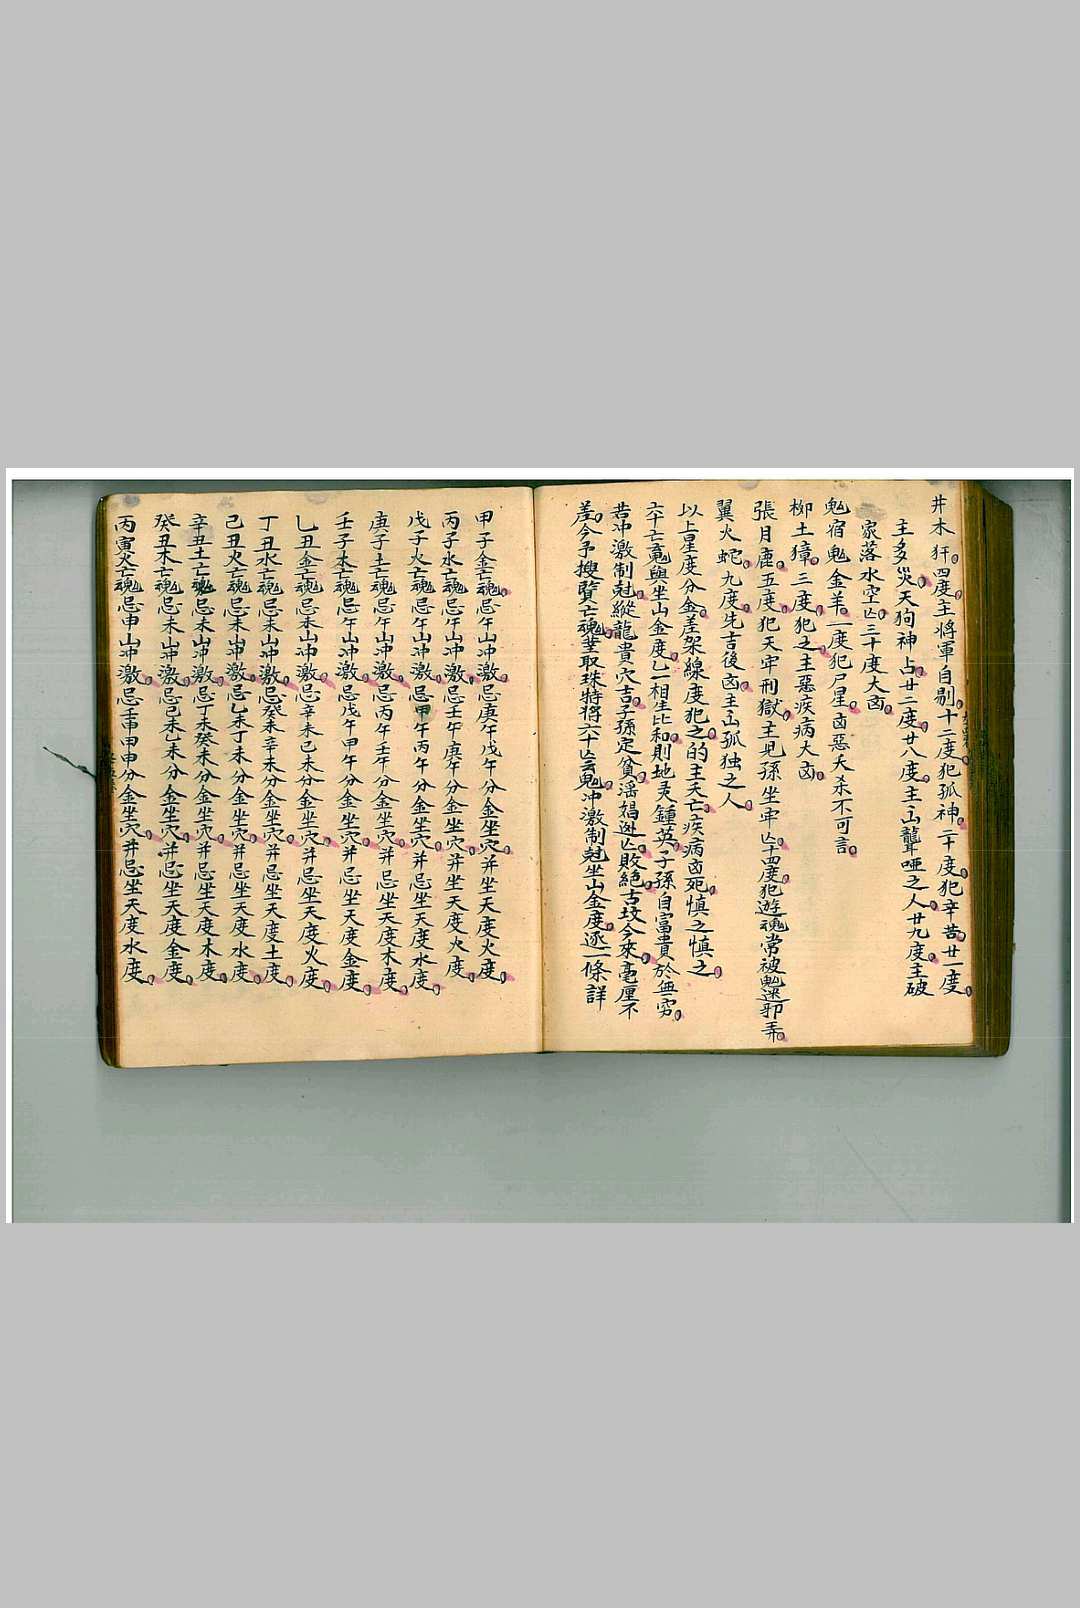 井木犴四度主將軍自剔十二度犯孤神二十度犯辛苦廿一度
主多災天狗神占廿二度廿八度主山聾啞之人廿九度主破
家落水空亡三十度大凶
鬼宿鬼金羊一度犯尸星凶惡夭杀不可言
柳土獐三度犯之主惡疾病大凶
張月鹿五度犯天牢刑獄主見孫坐牢亡十四度犯遊魂常被鬼迷邪弄
翼火蛇九度先吉後凶主山孤独之人
以上星度分金差架線度犯之的主夭亡疾病凶死慎之慎之
六十亡魂與坐山金度乙一相生比和則地灵鍾英子孫自富貴於無穷
若冲激制尅縱龍貴穴吉子孫定貧滛娼逃亡敗絕古坟今來毫厘不
差今予搜覽亡魂塟取珠特將六十亡云鬼冲激制尅坐山金度逐一條詳
甲子金亡魂忌午山冲激忌庚午戊午分金坐穴并坐天度火度
丙子水亡魂忌午山冲激忌壬午庚午分金坐穴并坐天度火度
戊子火亡魂忌午山冲激忌甲午丙午分金坐穴并忌坐天度水度
庚子土亡魂忌午山冲激忌丙午壬午分金坐穴并忌坐天度木度
壬子木亡魂忌午山冲激忌戊午甲午分金坐穴并忌坐天度金度
乙丑金亡魂忌未山冲激忌辛未己未分金坐穴并忌坐天度火度
丁丑水亡魂忌未山冲激忌癸未辛未分金坐穴并忌坐天度土度
己丑火亡魂忌未山冲激忌乙未丁未分金坐穴并忌坐天度水度
辛丑土亡魂忌未山冲激忌丁未癸未分金坐穴并忌坐天度木度
癸丑木亡魂忌未山冲激忌己未乙未分金坐穴并忌坐天度金度
丙寅火亡魂忌申山冲激忌壬申甲申分金坐穴并忌坐天度水度